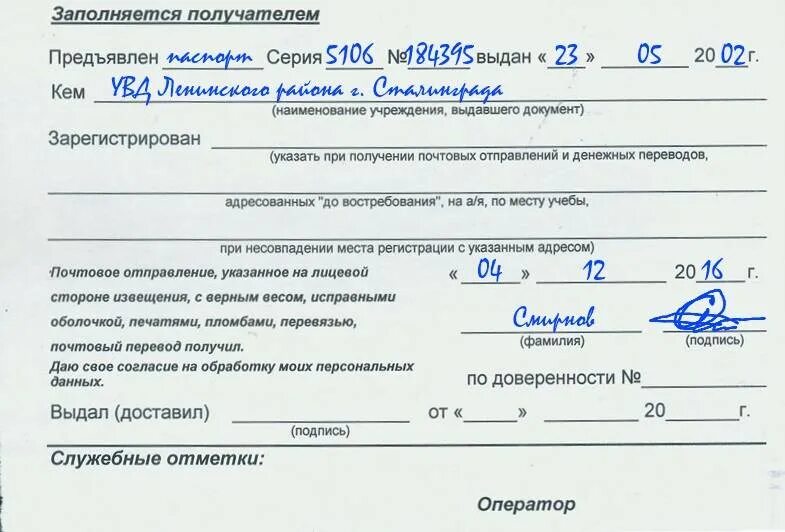 Заполняется получателем
Предъявлен паспорт Серия 5106 №184395 выдан « 23 » 05 2002г.
Кем УВД Ленинского района г. Сталинграда
(наименование учреждения, выдавшего документ)
Зарегистрирован
(указать при получении почтовых отправлений и денежных переводов,
адресованных "до востребования", на а/я, по месту учебы,
при несовпадении места регистрации с указанным адресом)
Почтовое отправление, указанное на лицевой
стороне извещения, с верным весом, исправными
оболочкой, печатями, пломбами, перевязью,
почтовый перевод получил.
Даю свое согласие на обработку моих персональных
данных.
« 04 » 12 2016 г.
Смирнов
(фамилия) (подпись)
по доверенности №
Выдал (доставил) от « » 20 г.
(подпись)
Служебные отметки:
Оператор